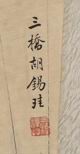 三橋胡錫珪